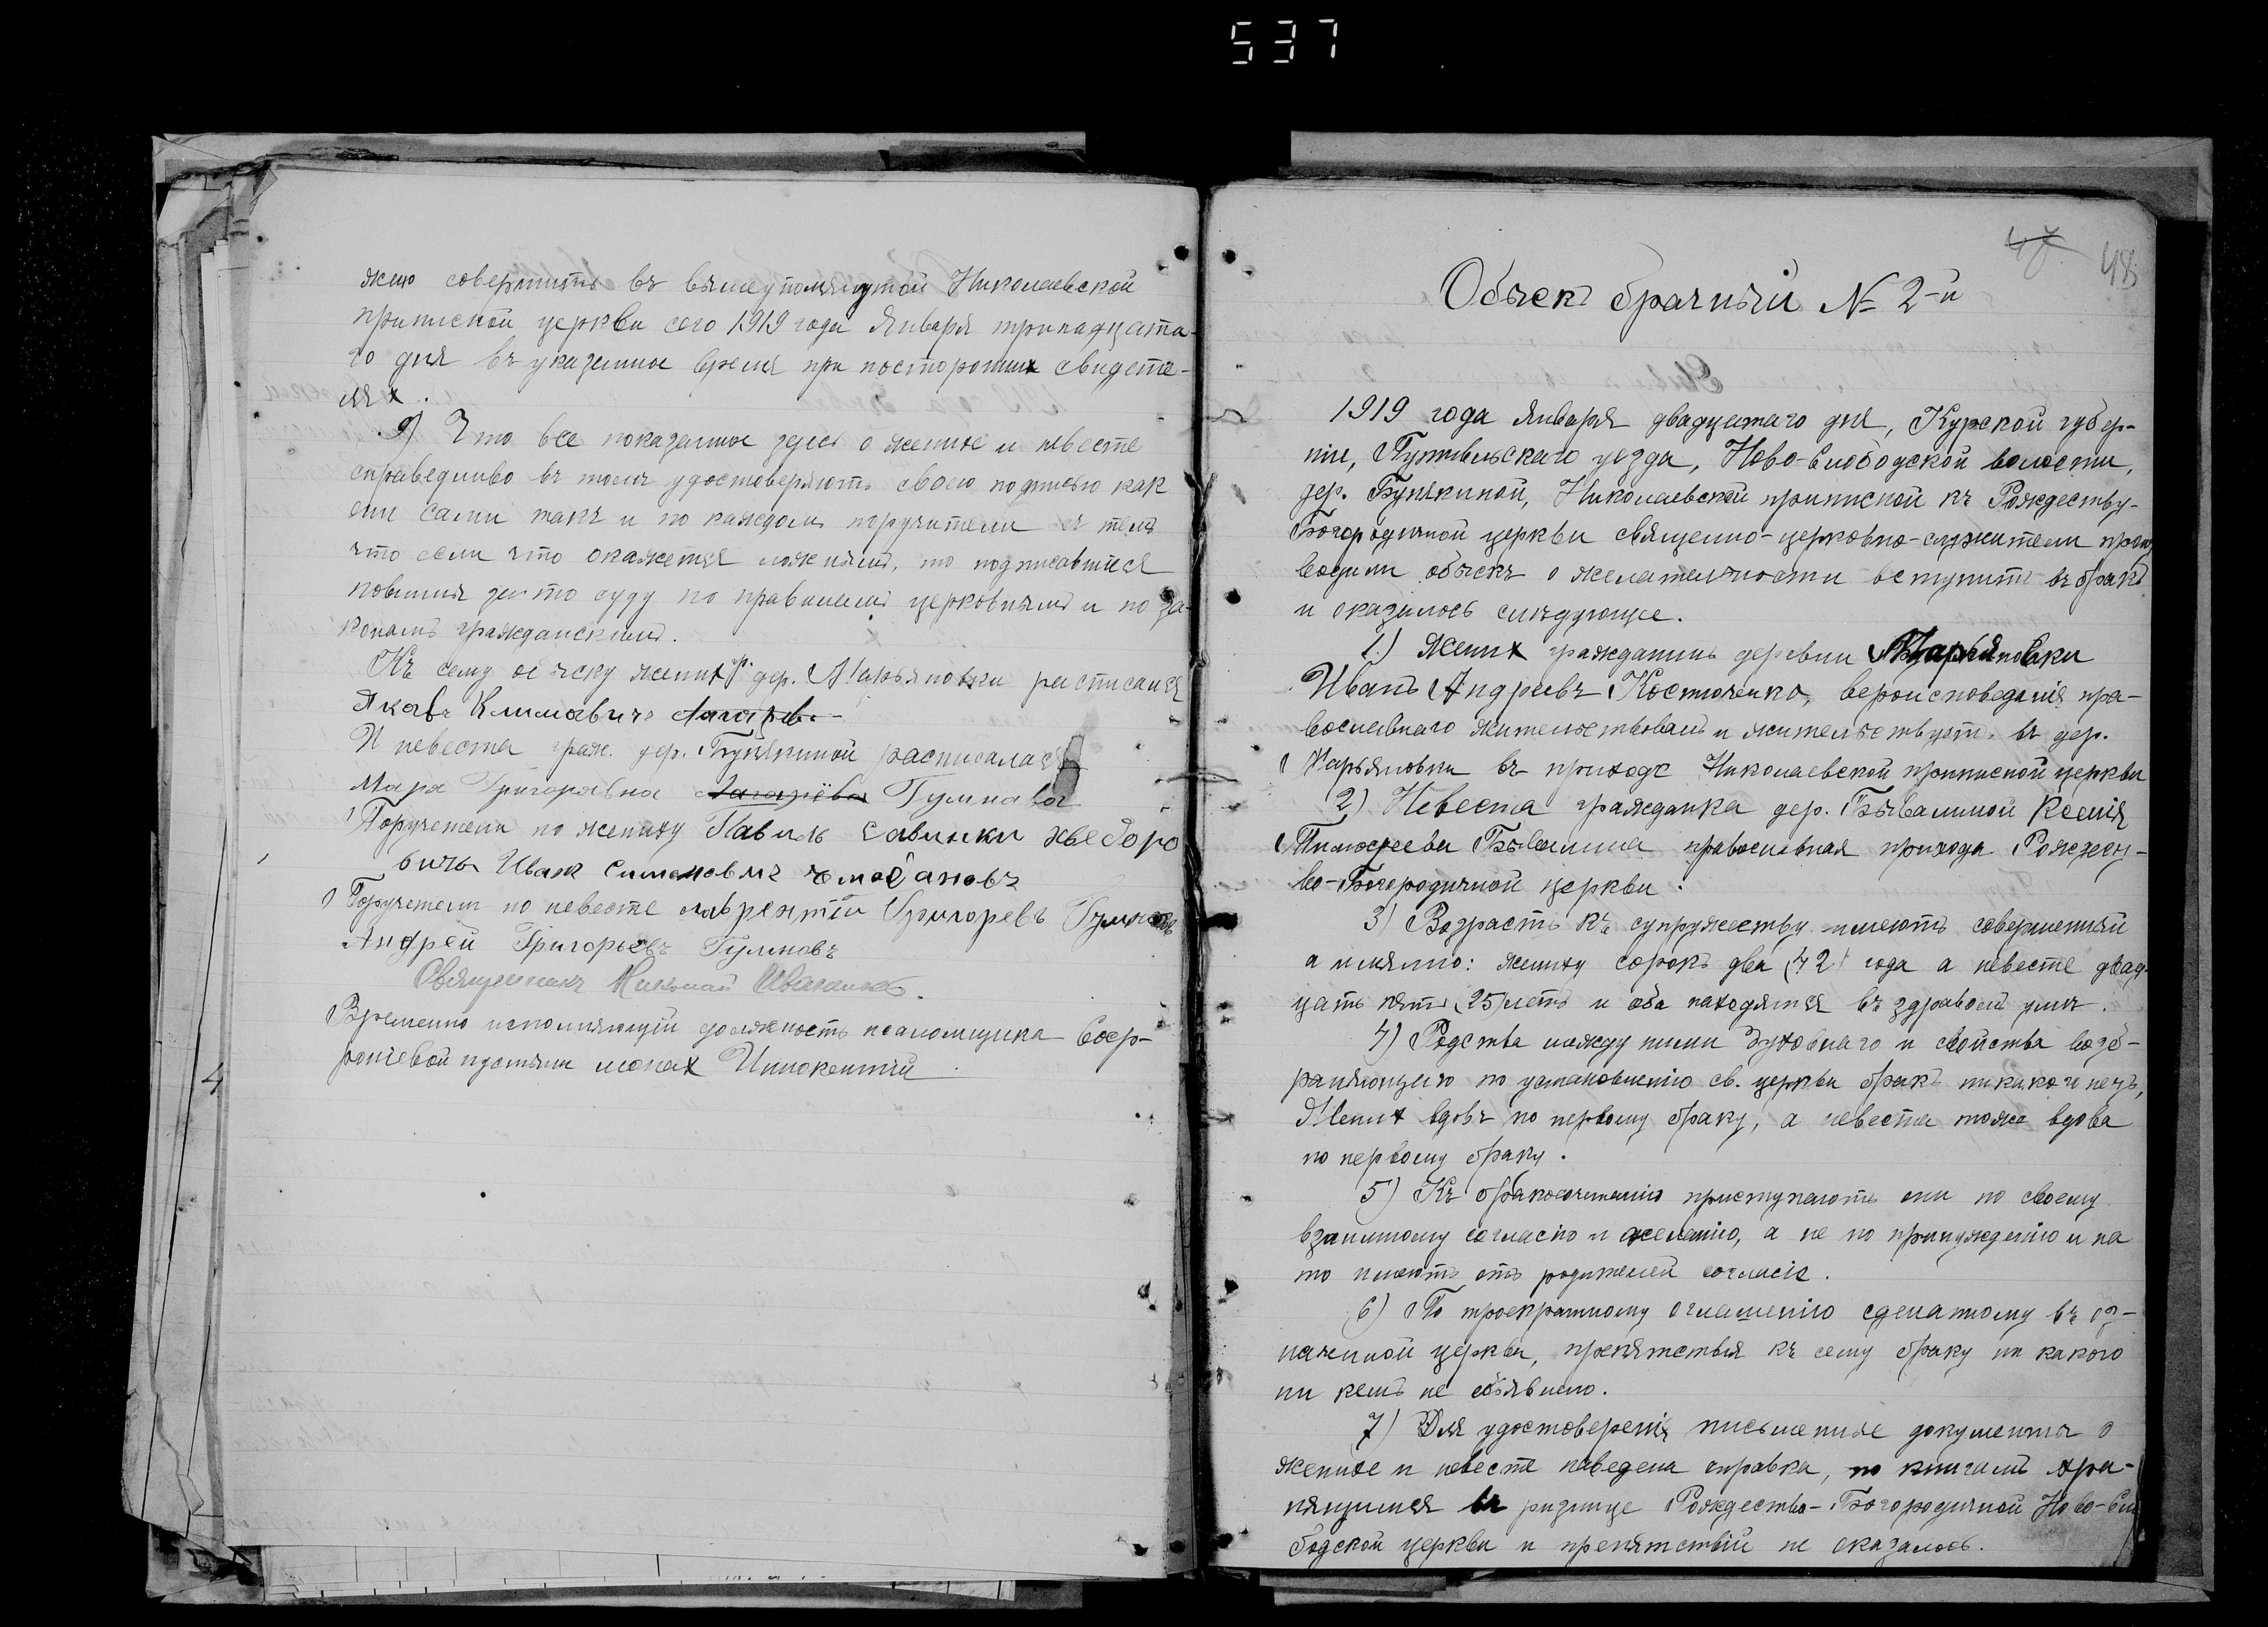 537
жно совершить въ вышеупомянутой Николаевской
приписной церкви сего 1919 года Января тринадцата-
го дня въ указанное время при посторонних свидете-
лях.
9) Что все показанное здесь о женихе и невесте
справедливо въ томъ удостоверяютъ своею подписью как
они сами такъ и по каждомъ поручители съ темъ
что если что окажется ложнымъ, то подписавшиеся
повинны за то суду по правиламъ церковнымъ и по за-
конамъ гражданскимъ.
Къ сему обыску жених гр. дер. Марьяновки расписался
Якавъ Климавичъ
И невеста граж. дер. Бунякиной расписалася
Мария Григоравна Гулинава
Поручители по жениху Павилъ Савинки хведоро
вичъ Иван Симановичъ
Поручители по невесте лаврентий Григоревъ Гулинавъ
Андрей Григорьевъ Гулиновъ
Священникъ Николай Иванников.
Временно исполняющий должность псаломщика Соф-
рониевой пустыни монах Иннокентий
4
47 48
Обыскъ брачный № 2-й
1919 года Января двадцатаго дня, Курской губер-
нии, Путивльскаго уезда, Ново-Слободской волости,
дер. Бунякиной, Николаевской приписной къ Рождеству-
Богородичной церкви священно-церковно-служители произ
водили обыскъ о желательности вступить въ бракъ
и оказалось следующее.
1.) Жених гражданинъ деревни Марьяновки
Иванъ Андреевъ Костюченко, вероисповеданія пра-
вославнаго жительствовалъ и жительствуетъ въ дер.
Марьяновки въ приходе Николаевской приписной церкви
2) Невеста гражданка дер. Бывалиной Ксенія
Тимофеева Бывалина православная прихода Рождест-
во-Богородичной церкви.
3) Возрастъ къ супружеству имеютъ совершенный
а именно: жениху сорокъ два (42) года а невесте двад-
цать пять (25) летъ и оба находятся въ здравомъ уме.
4) Родства между ними духовнаго и свойства возб-
раняющаго по установленію св. церкви бракъ никакого нетъ,
Жених вдовъ по первому браку, а невеста тоже вдова
по первому браку.
5) Къ бракосочетанию приступаютъ они по своему
взаимному согласию и желанію, а не по принуждению и на
то имеютъ отъ родителей согласіе.
6) По троекратному оглашенію сделанному въ оз-
наченной церкви, препятствия къ сему браку ни какого
ни кемъ не объявлено.
7) Для удостоверенія письменные документы о
женихе и невесте наведена справка, по книгамъ хра-
нящимся въ ризнице Рождество-Богородичной Ново-Сло
бодской церкви и препятствий не оказалось.